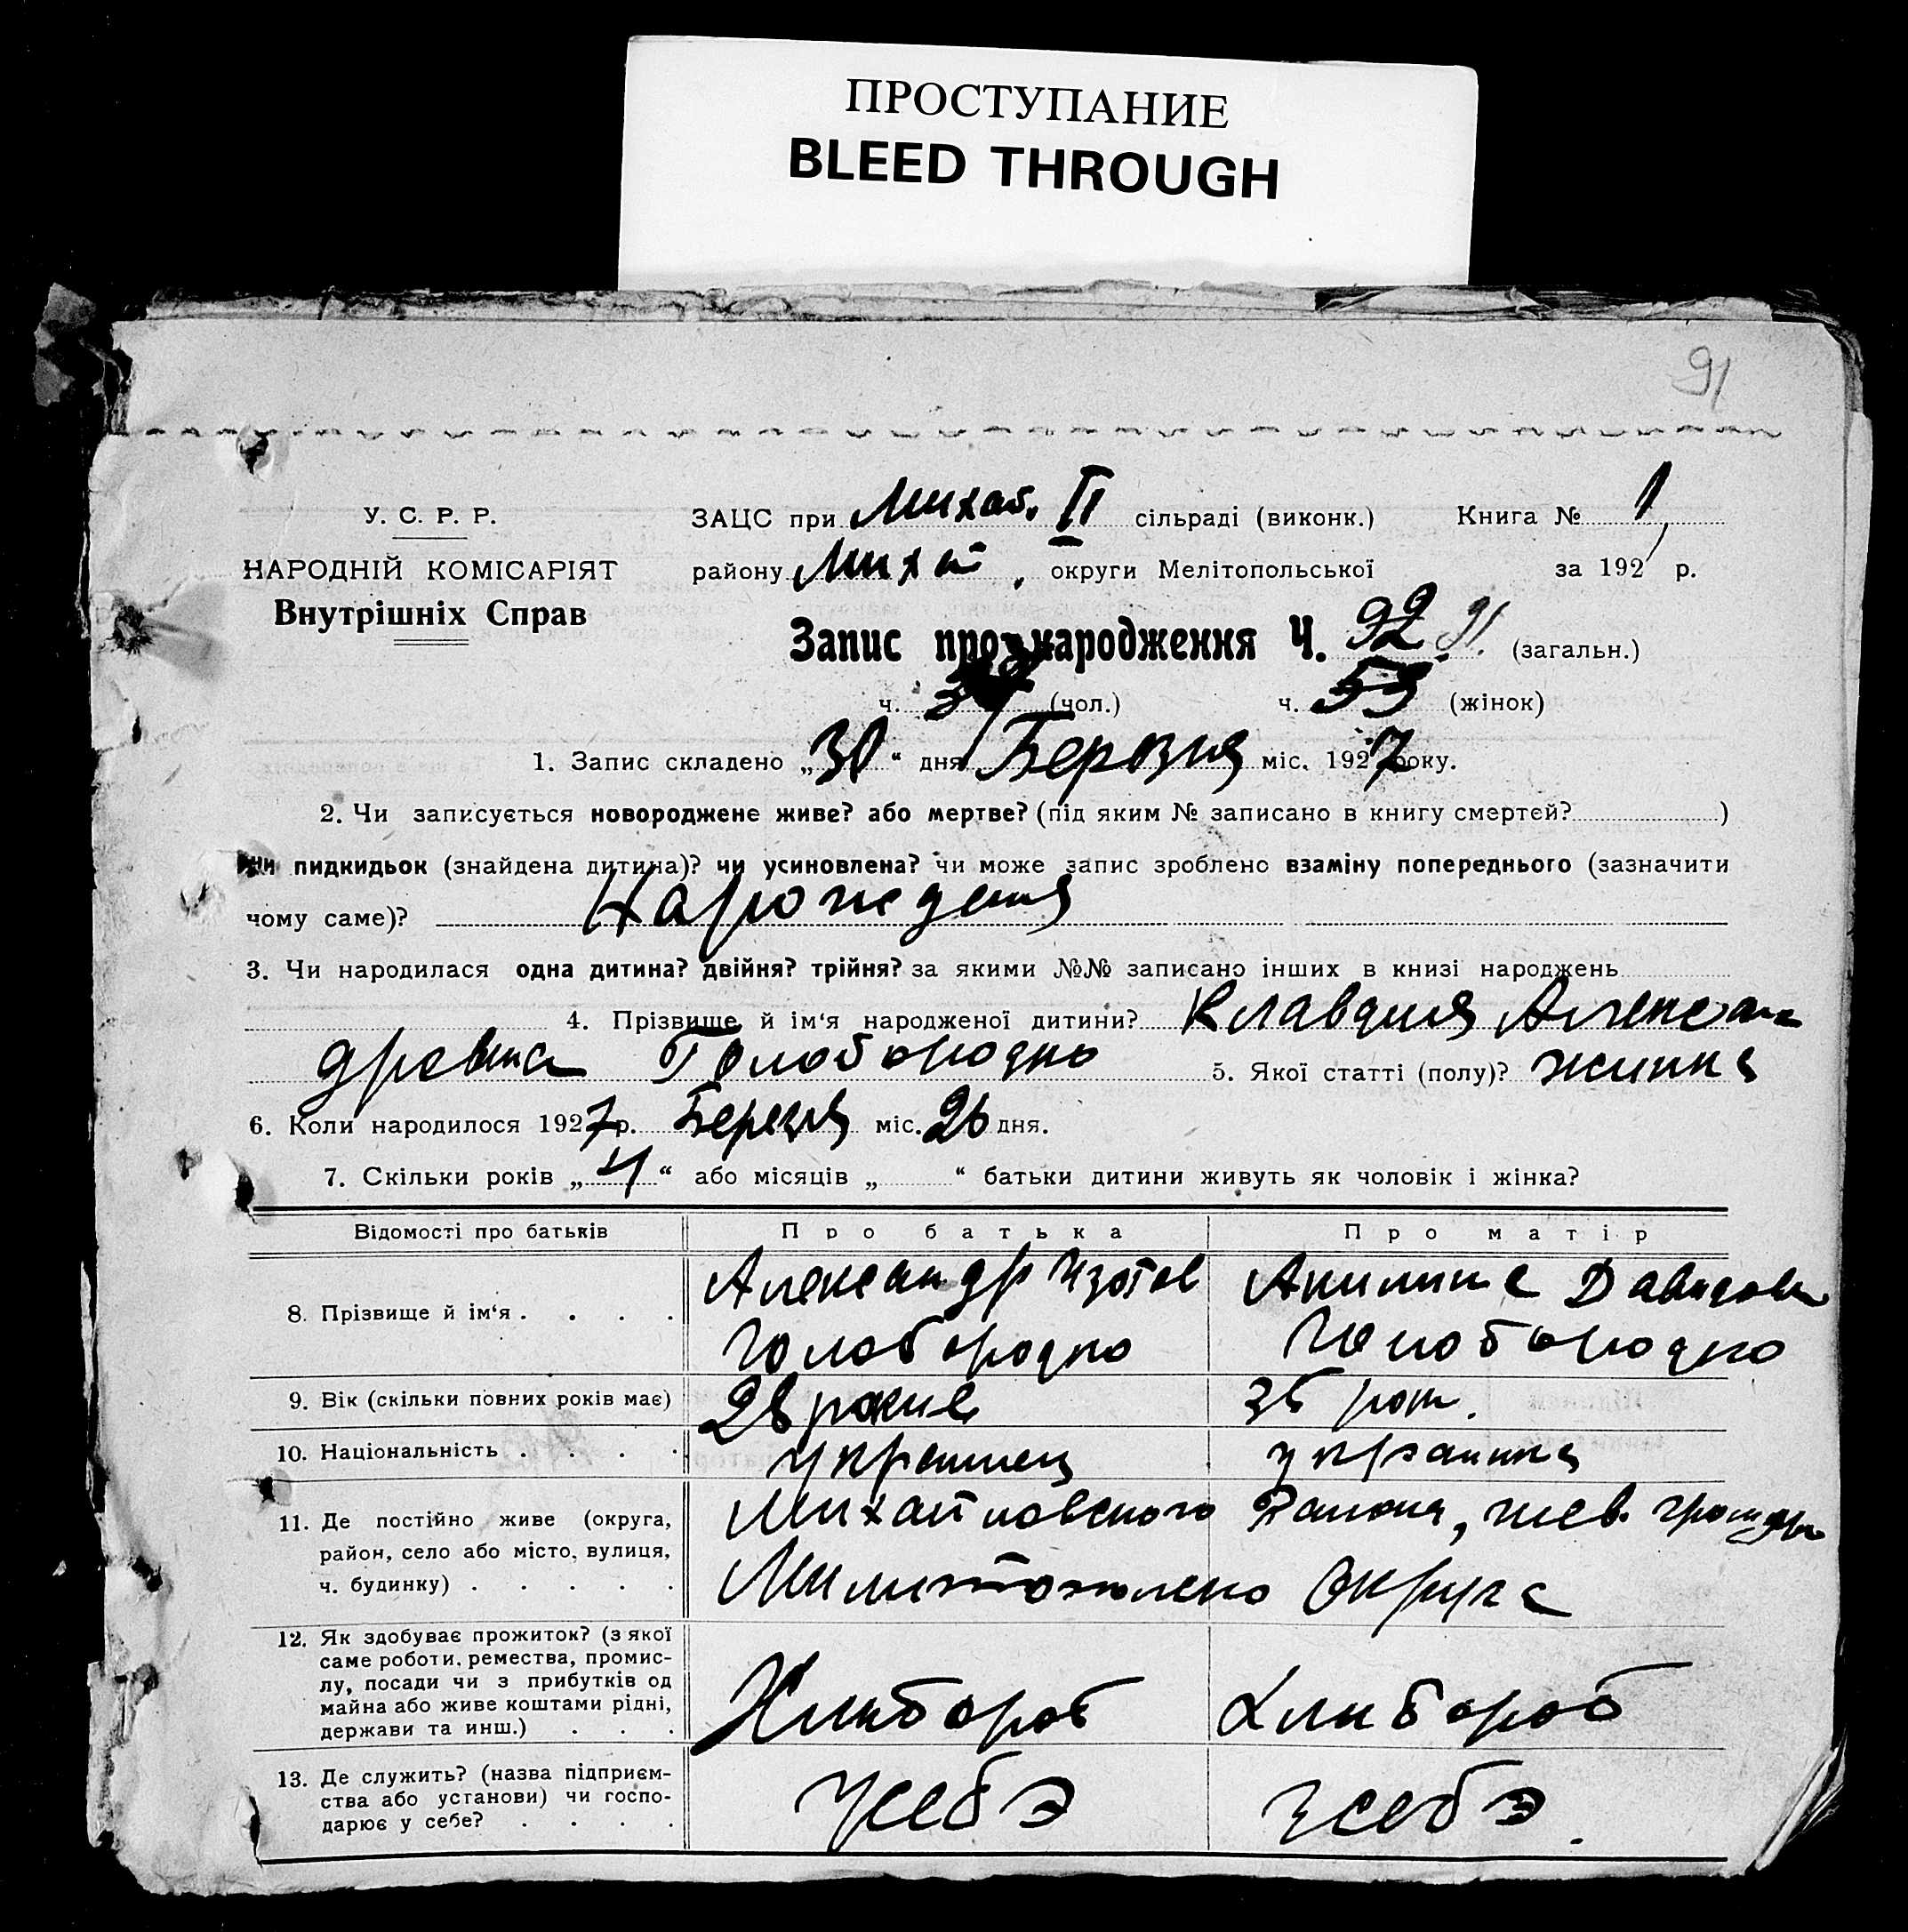 ПРОСТУПАНИЕ
BLEED THROUGH
91
У. С. Р. Р.
НАРОДНІЙ КОМІСАРІЯТ
Внутрішніх Справ
ЗАЦС при Михай. II сільраді (виконк.) Книга № 1
району Михай. округи Мелітопольської за 192 р.
Запис про народження Ч. 92 91. (загальн.)
ч. (чол.) ч. 53 (жінок)
1. Запис складено „30“ дня Березня міс. 1927 року.
2. Чи записується новороджене живе? або мертве? (під яким № записано в книгу смертей? )
Чи пидкидьок (знайдена дитина)? чи усиновлена? чи може запис зроблено взаміну попереднього (зазначити
чому саме)? Нарождения
3. Чи народилася одна дитина? двійня? трійня? за якими №№ записано інших в книзі народжень
4. Прізвище й ім‘я народженої дитини? Клавдия Алексан
дровна Голобородко 5. Якої статті (полу)? жинка
6. Коли народилося 1927 р. Березня міс. 26 дня.
7. Скільки років „4“ або місяців „ “ батьки дитини живуть як чоловік і жінка?
Відомості про батьків Про батька Про матір
8. Прізвище й ім‘я . . . . Александр Изотов Акилина Давидов
Голобородко Голобородко
9. Вік (скільки повних років має) 28 рокив 35 рок.
10. Національність . . . . украинец украинка
11. Де постійно живе (округа,
район, село або місто, вулиця,
ч. будинку) . . . . .
Михайловского Района,
Милитопольско Округа
12. Як здобуває прожиток? (з якої
саме роботи, ремества, промис-
лу, посади чи з прибутків од
майна або живе коштами рідні,
держави та инш.) . . .
Хлибороб Хлибороб
13. Де служить? (назва підприєм-
ства або установи) чи госпо-
дарює у себе? . . . .
усебэ усебэ.